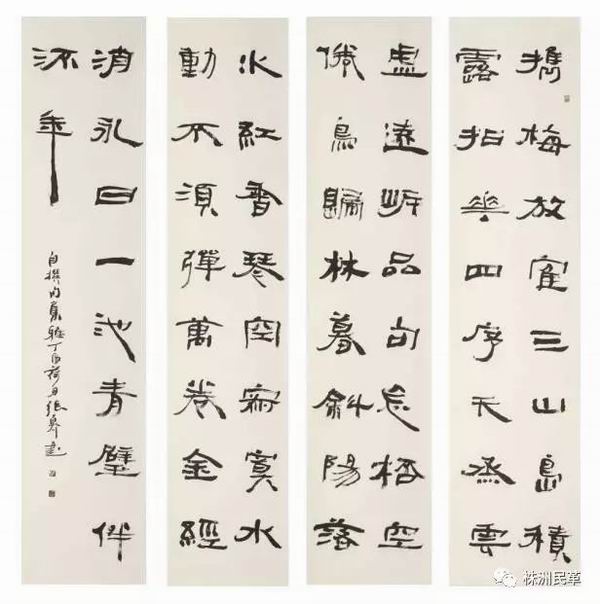 携梅放寉三山島積
露招華四序天烝雲
虛遠品句忘栖空
俄鳥歸林暮斜陽落
水紅香琴空寂寞水
動不須彈萬卷金經
消永日一池青璧伴
流年
自撰丁酉荷月張書
株洲民革